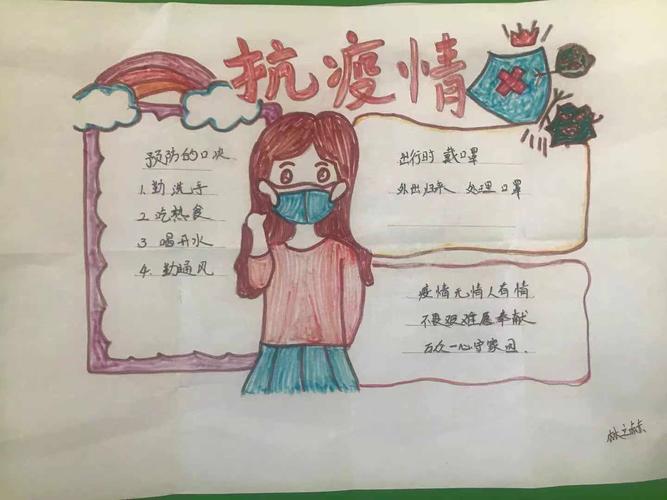 抗疫情
预防的口决
1. 勤洗手
2 吃热食
3 喝开水
4. 勤通风
出行时 戴口罩
外出归来 处理口罩
疫情无情人有情
不畏艰难愿奉献
万众一心守家园.